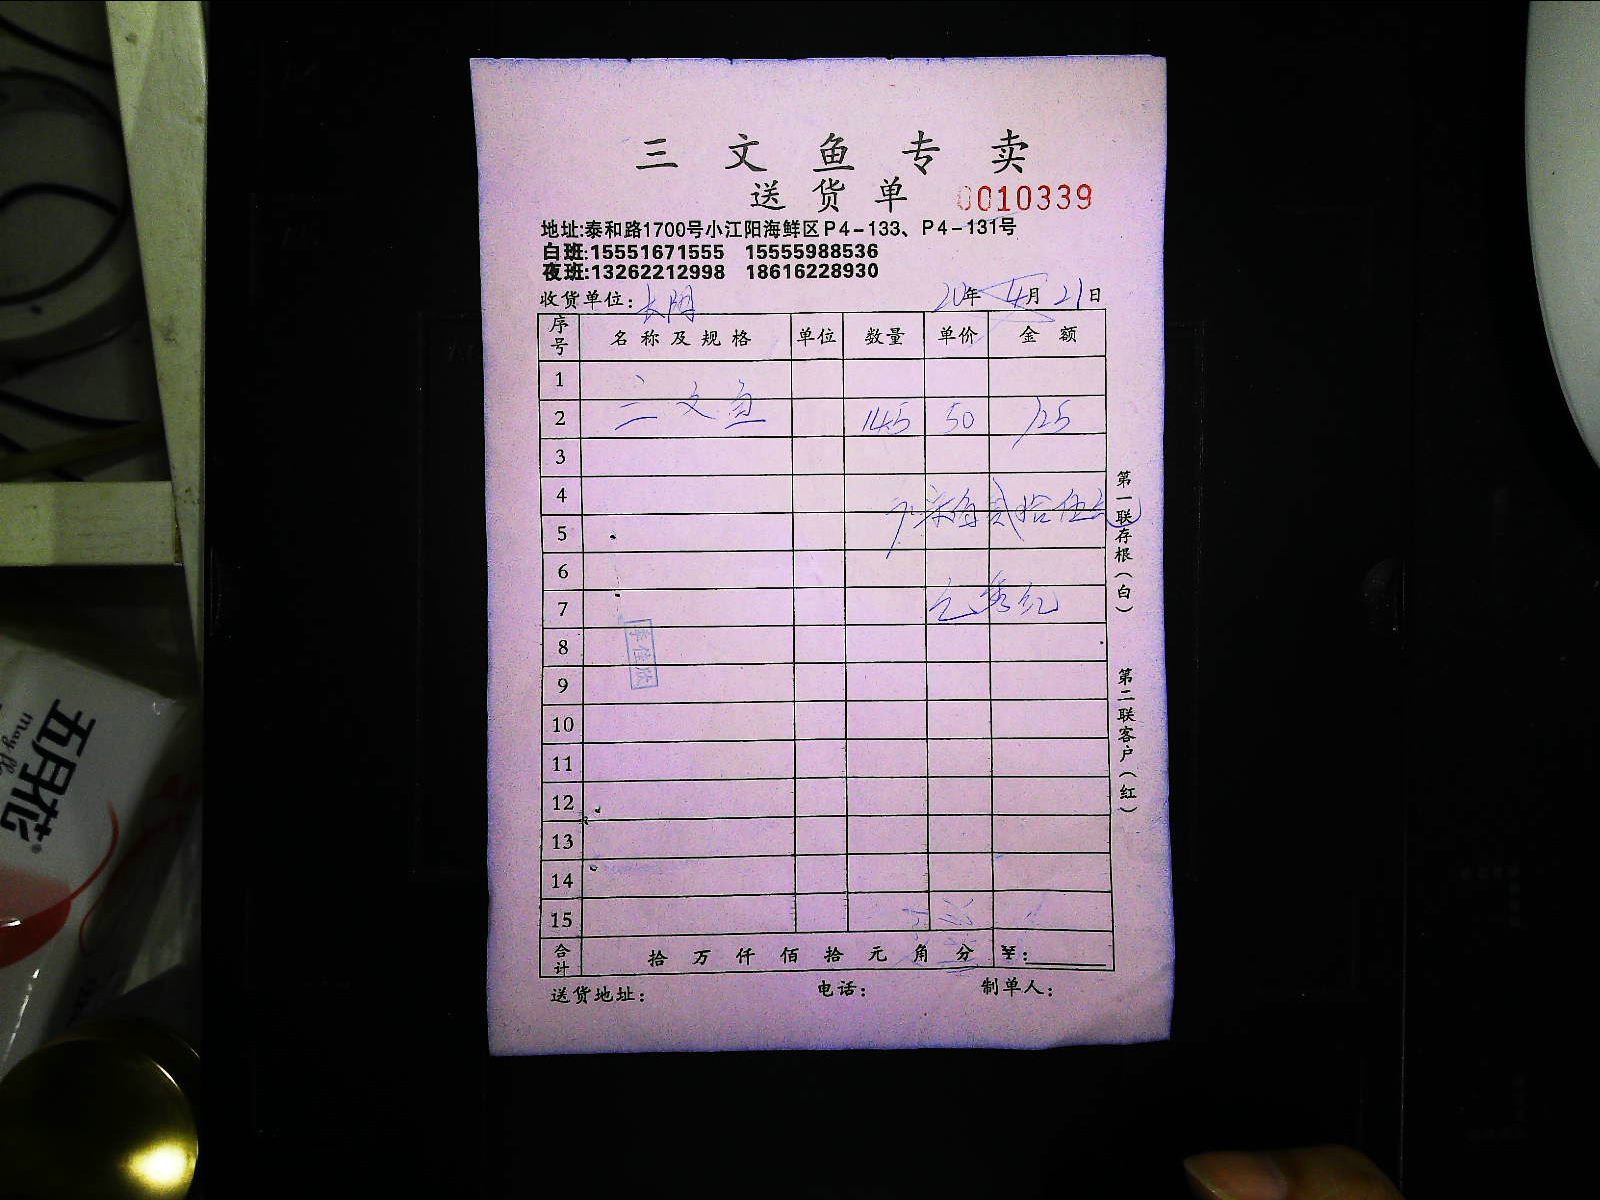 三文鱼专卖
送货单 0010339
地址:泰和路1700号小江阳海鲜区P4-133、P4-131号
白班:15551671555 15555988536
夜班:13262212998 18616228930
收货单位: 20年4月21日
序号 名称及规格 单位 数量 单价 金额
1
2 三文鱼 145 50 725
3
4
5
6
7
8
9
10
11
12
13
14
15
合计 拾万仟佰拾元角分 ¥:
送货地址: 电话: 制单人:
第一联存根(白)
第二联客户(红)
五月花
may